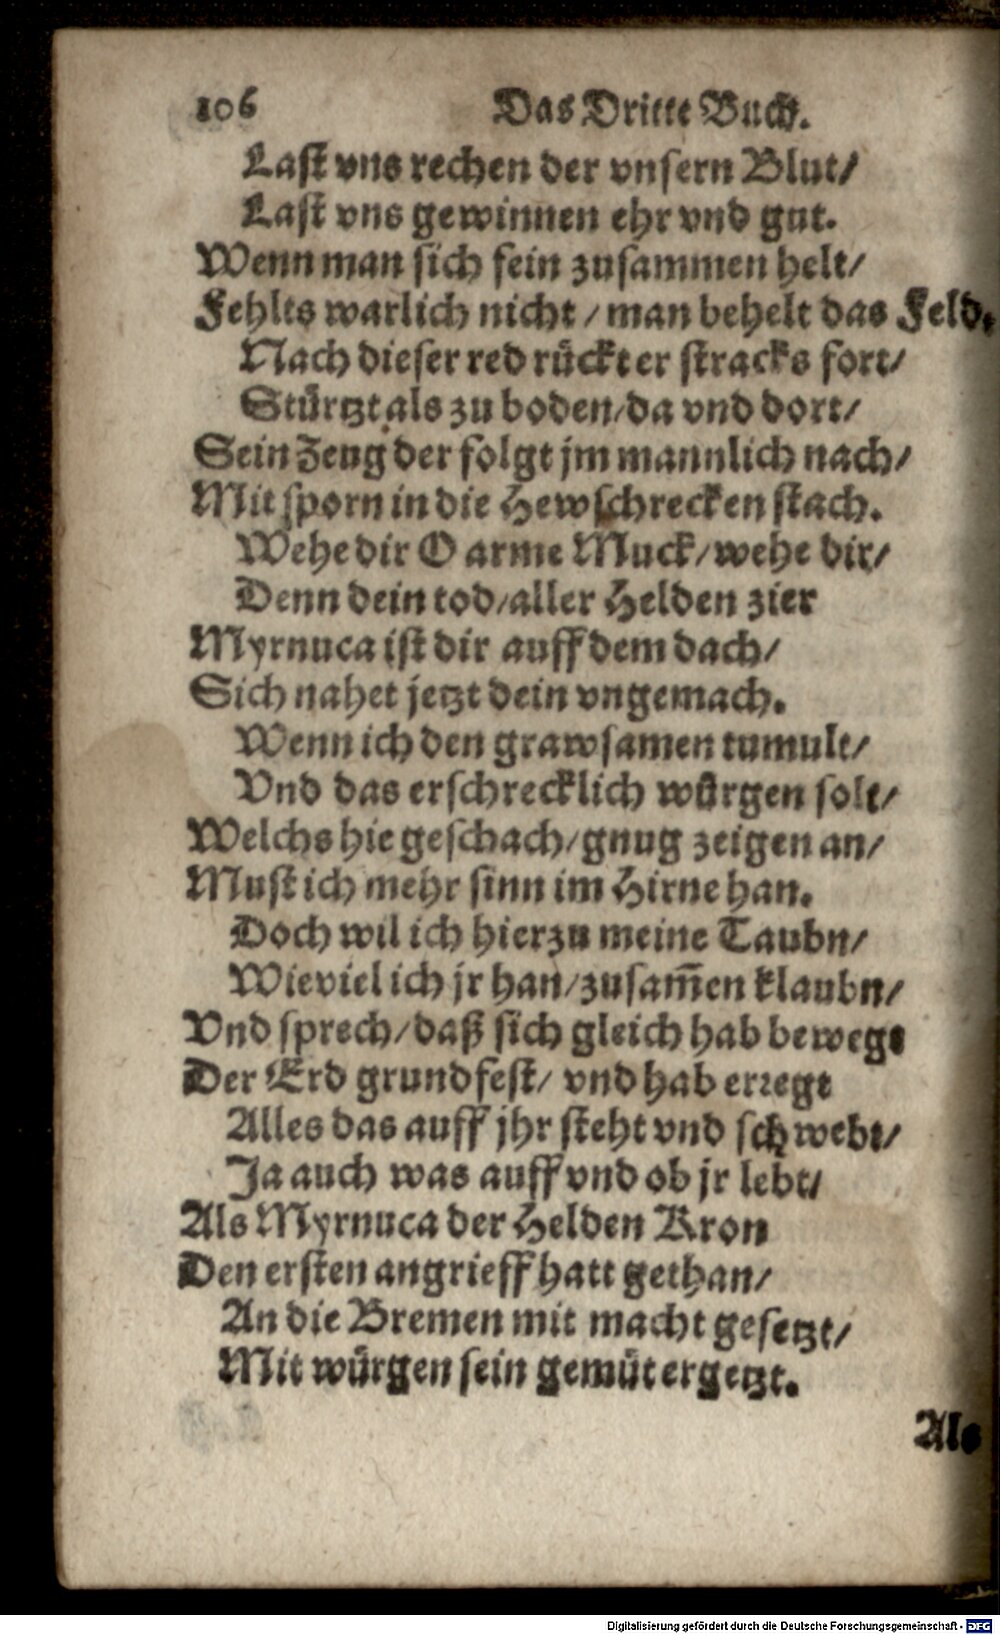 106 Das Dritte Buch.
Last vns rechen der vnsern Blut/
Last vns gewinnen ehr vnd gut.
Wenn man sich fein zusammen helt/
Fehlts warlich nicht / man behelt das Feld.
Nach dieser red rückt er stracks fort/
Stürtzt als zu boden/da vnd dort/
Sein Zeug der folgt jm mannlich nach/
Mit sporn in die Hewschrecken stach.
Wehe dir O arme Muck/wehe dir/
Denn dein tod/aller Helden zier
Myrnuca ist dir auff dem dach/
Sich nahet jetzt dein vngemach.
Wenn ich den grawsamen tumult/
Vnd das erschrecklich würgen solt/
Welchs hie geschach/gnug zeigen an/
Must ich mehr sinn im Hirne han.
Doch wil ich hierzu meine Taubn/
Wieviel ich jr han/zusam̄en klaubn/
Vnd sprech/daß sich gleich hab bewegt
Der Erd grundfest/ vnd hab erregt
Alles das auff jhr steht vnd schwebt/
Ja auch was auff vnd ob jr lebt/
Als Myrnuca der Helden Kron
Den ersten angrieff hatt gethan/
An die Bremen mit macht gesetzt/
Mit würgen sein gemüt ergetzt.
Als
Digitalisierung gefördert durch die Deutsche Forschungsgemeinschaft - DFG